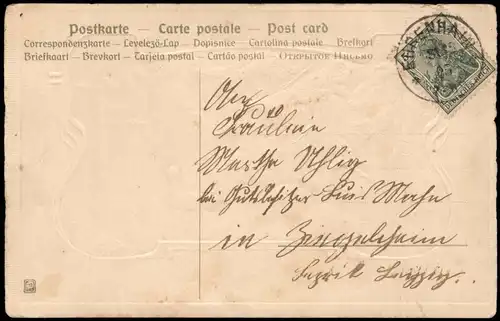 Postkarte – Carte postale – Post card
Correspondenzkarte – Levelező-Lap – Dopisnice – Cartolina postale – Brefkort
Briefkaart – Brevkort – Tarjeta postal – Cartão postal – Открытое Письмо
An
Fräulein
Martha Uhlig
bei Gutsbesitzer Louis Mehn
in
Leipzig.